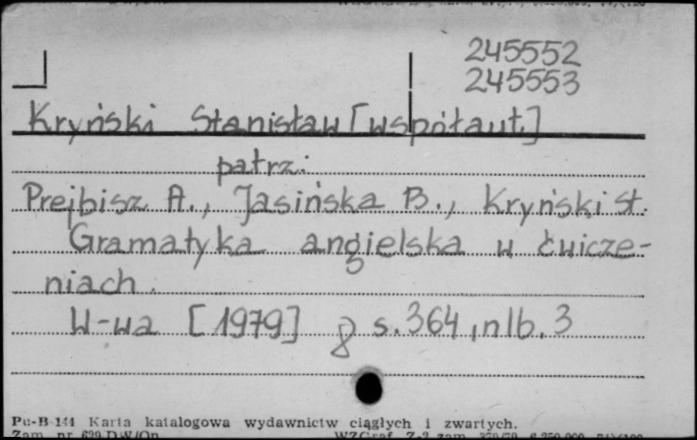 245552
245553
Kryński Stanisław [współaut.]
patrz:
Prejbisz A., Jasińska B., Kryński St.
Gramatyka angielska w ćwicze-
niach.
W-wa [1979] 8 s. 364, nlb. 3
Pu-B 144 Karta katalogowa wydawnictw ciągłych i zwartych.
Zam. nr 629 D.W/On. WZGraf. Z-2 zam.